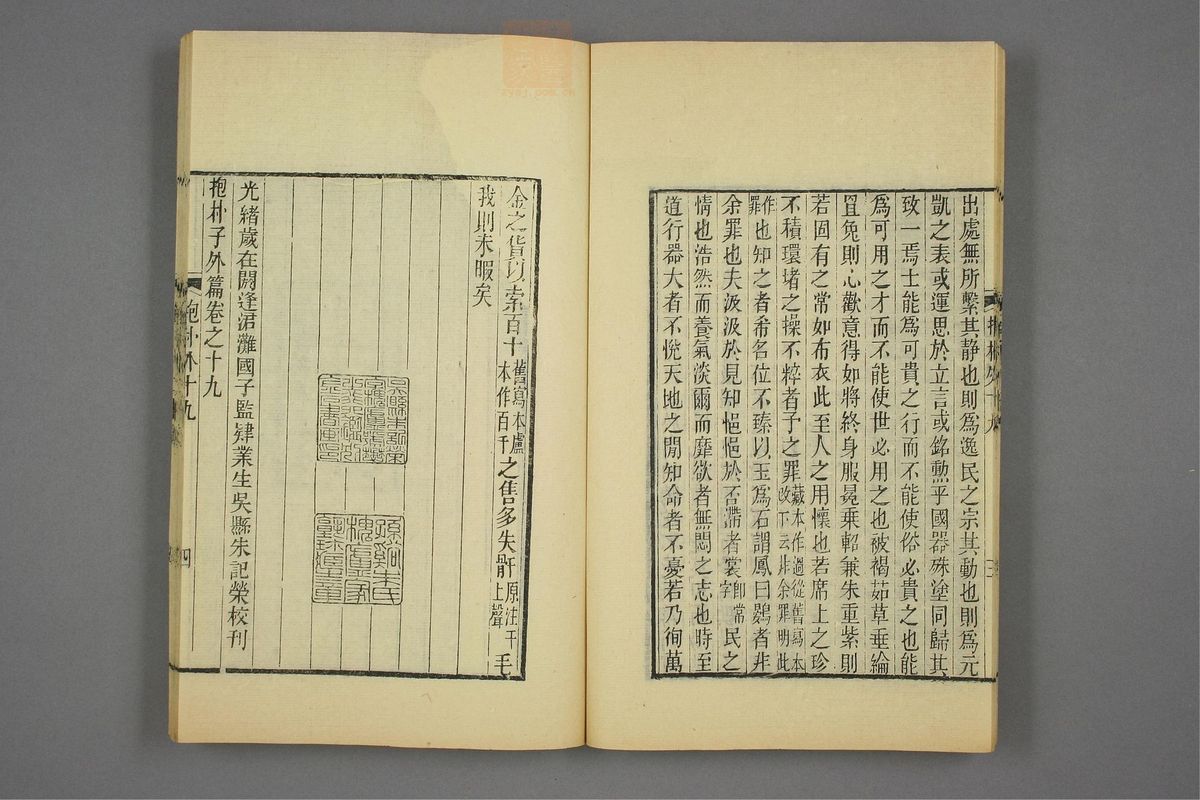 出處無所繫其静也則爲逸民之宗其動也則爲元
凱之表或運思於立言或銘勲乎國器殊塗同歸其
致一焉士能爲可貴之行而不能使俗必貴之也能
爲可用之才而不能使世必用之也被褐茹草垂綸
罝兔則心歡意得如將終身服冕乗軺兼朱重紫則
若固有之常如布衣此至人之用懷也若席上之珍
不積環堵之操不粹者予之罪藏本作過從舊寫本改下云非余罪明此
作罪也知之者希名位不臻以玉爲石謂鳳曰鷃者非
余罪也夫汲汲於見知悒悒於否滯者裳卽常字民之
情也浩然而養氣淡爾而靡欲者無悶之志也時至
道行器大者不悅天地之閒知命者不憂若乃徇萬
抱朴外十九
三
金之貨以索百十舊寫本盧本作百千之售多失骭原注干上聲毛
我則未暇矣
孫谿朱氏
槐廬家
光緒歲在閼逢涒灘國子監肄業生吳縣朱記榮校刊
抱朴子外篇卷之十九
抱朴外十九
四